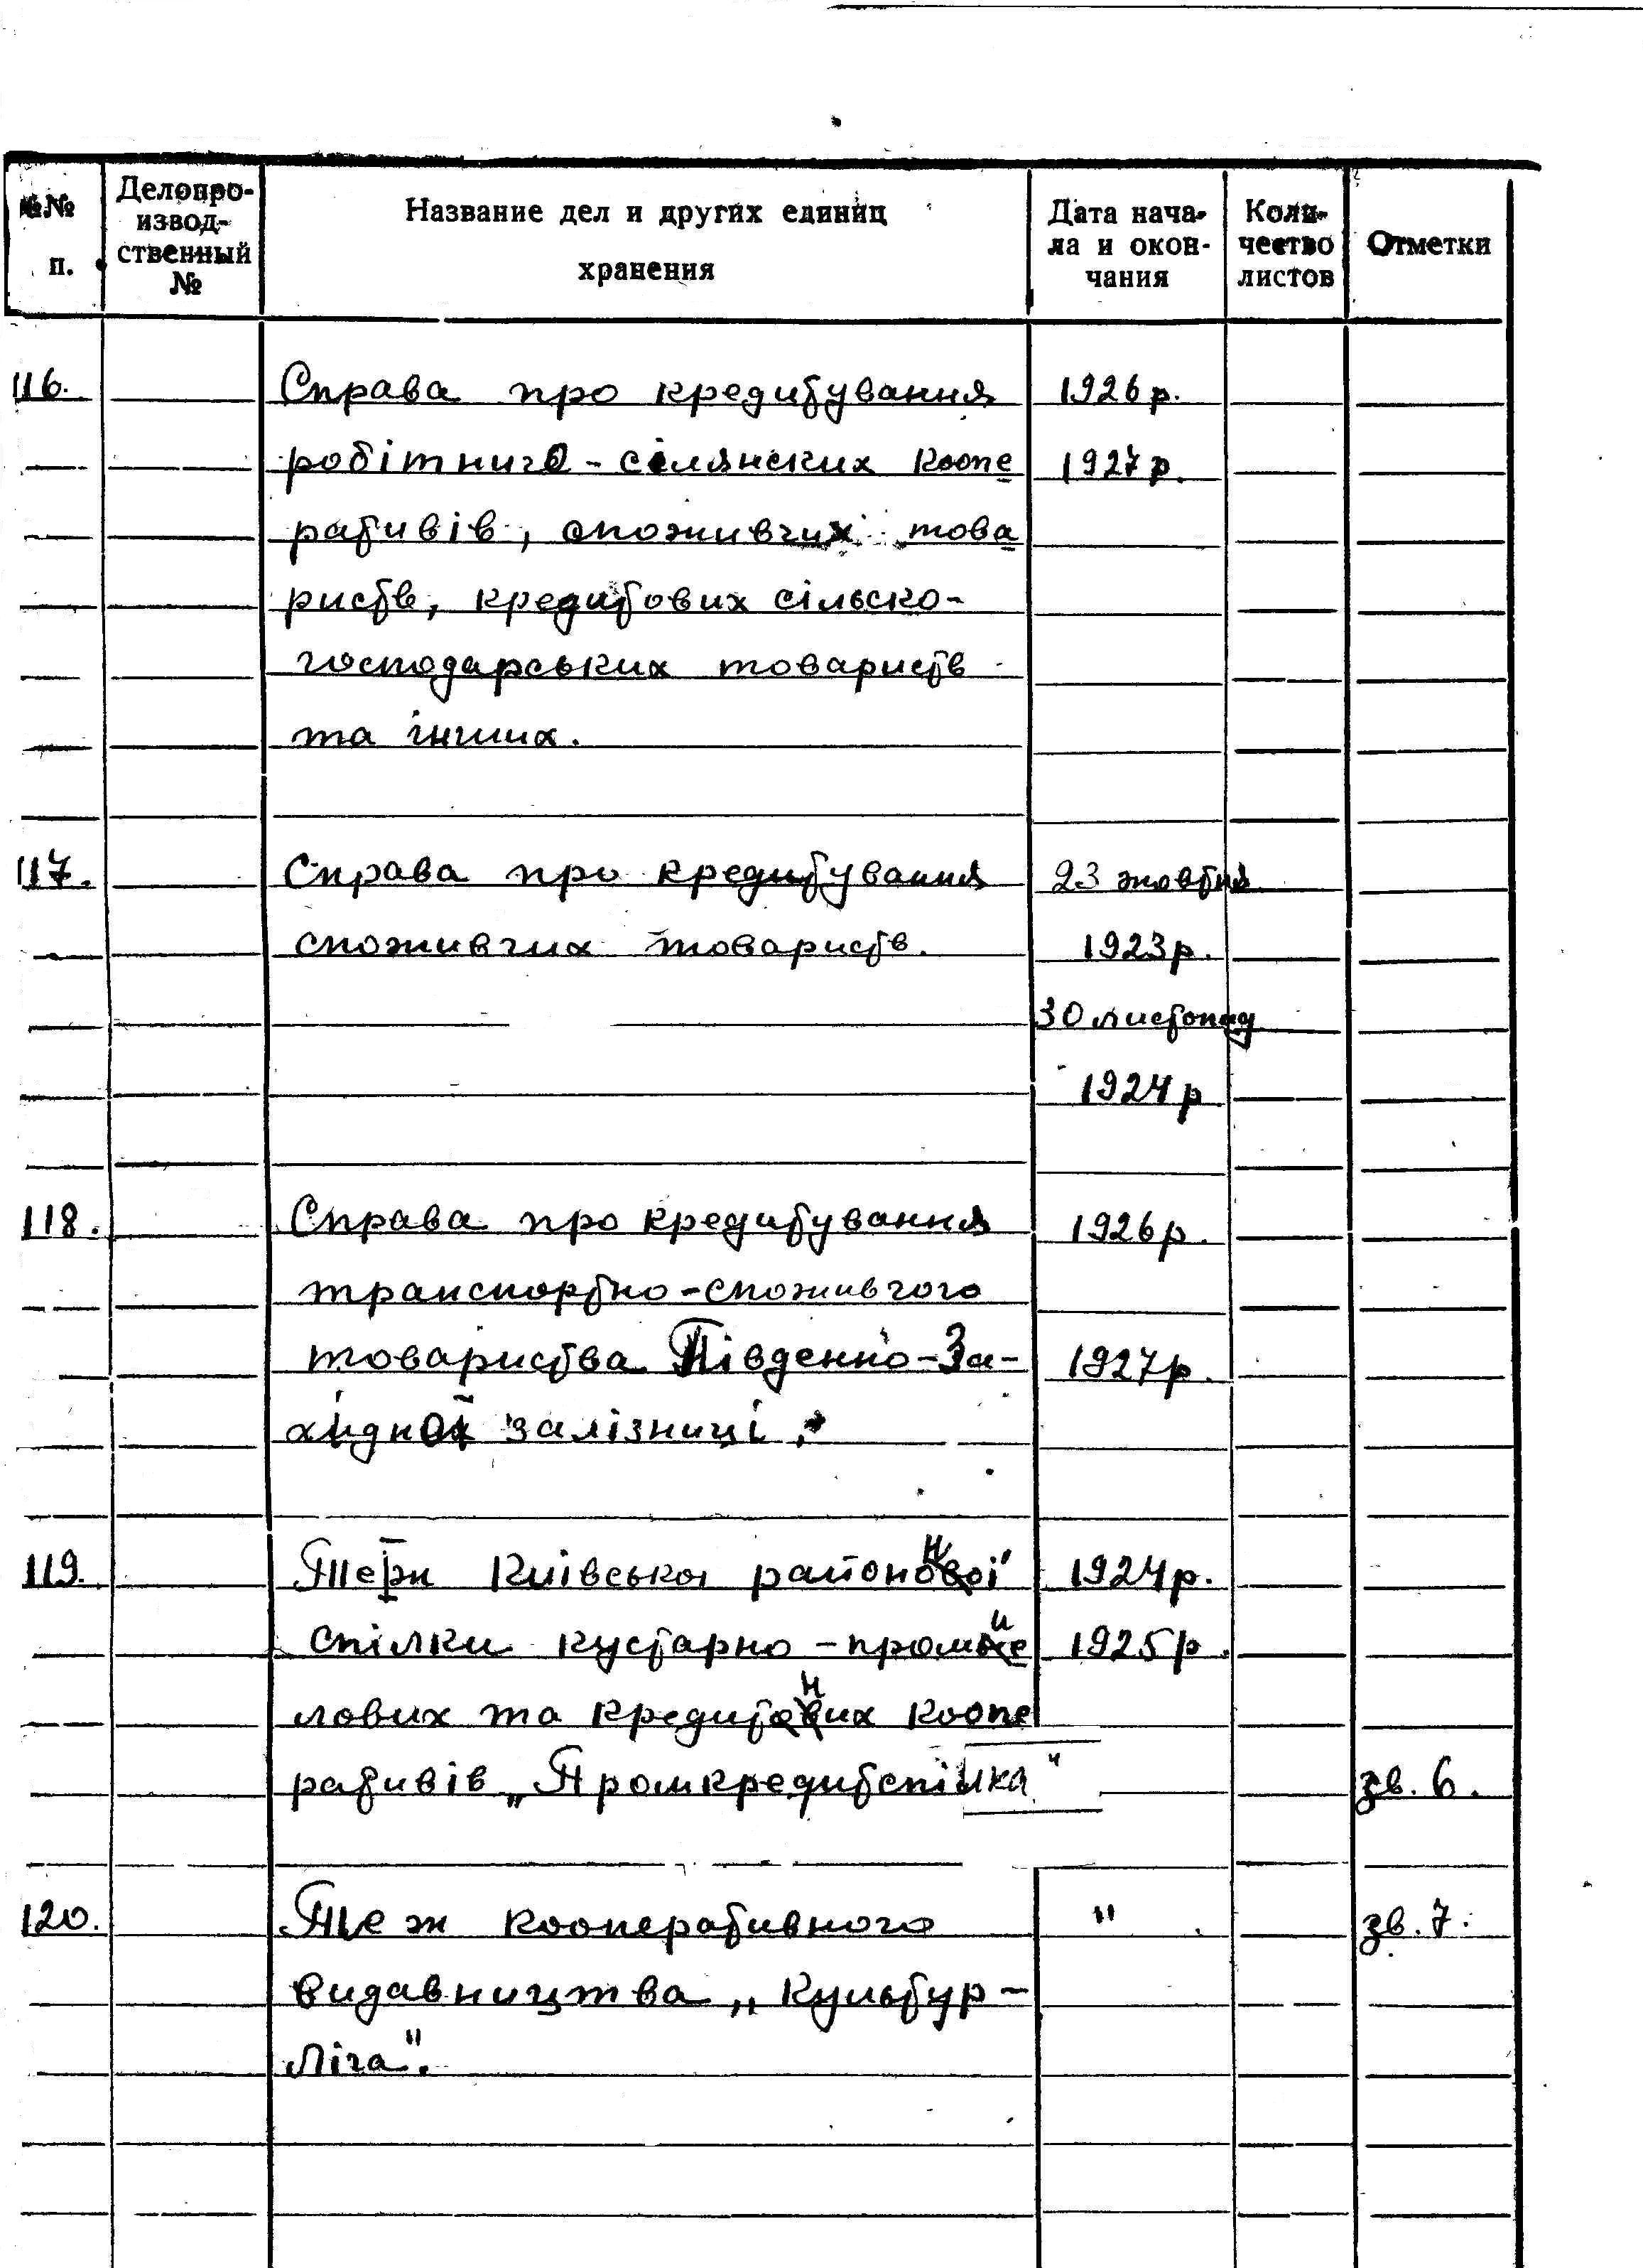 №№ п.
Делопро-
извод-
ственный
№
Название дел и других единиц
хранения
Дата нача-
ла и окон-
чания
Коли-
чество
листов
Отметки
116. Справа про кредитування 1926 р.
робітничо-селянских коопе 1927 р.
ративів, споживчих това
риств, кредитових сільско-
господарських товариств
та інших.
117. Справа про кредитування 23 жовтня
споживчих товариств. 1923 р.
30 листопад
1924 р
118. Справа про кредитування 1926 р.
транспортно-споживчого
товариства Південно-За- 1927 р.
хідної залізниці.
119. Київської районної 1924 р.
спілки кустарно-проми 1925 р.
лових та кредитних коопе
ративів „Промкредитспілка" зв. 6.
120. Теж кооперативного " зв. 7.
видавництва „Культур-
Ліга".